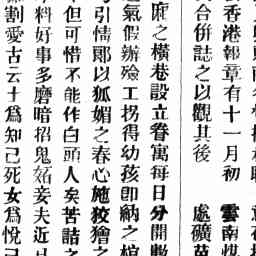 香港報章有十一月初 雲南煤
合併誌之以觀其後 處礦苗
之橫巷設立眷寓每日分開數
氣假辦殮工拐得幼孩卽納之棺
引情郞以狐媚之春心施狡獪之
但可惜不能作白頭人矣苦詰之
料好事多磨暗招鬼妬妾夫近
割愛古云士爲知己死女爲悅己